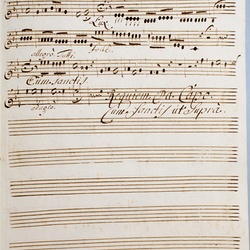 Lux
allegro Tutti
Cum Sanctis
Requiem Da Capo
adagio.
Cum Sanctis ut Supra.